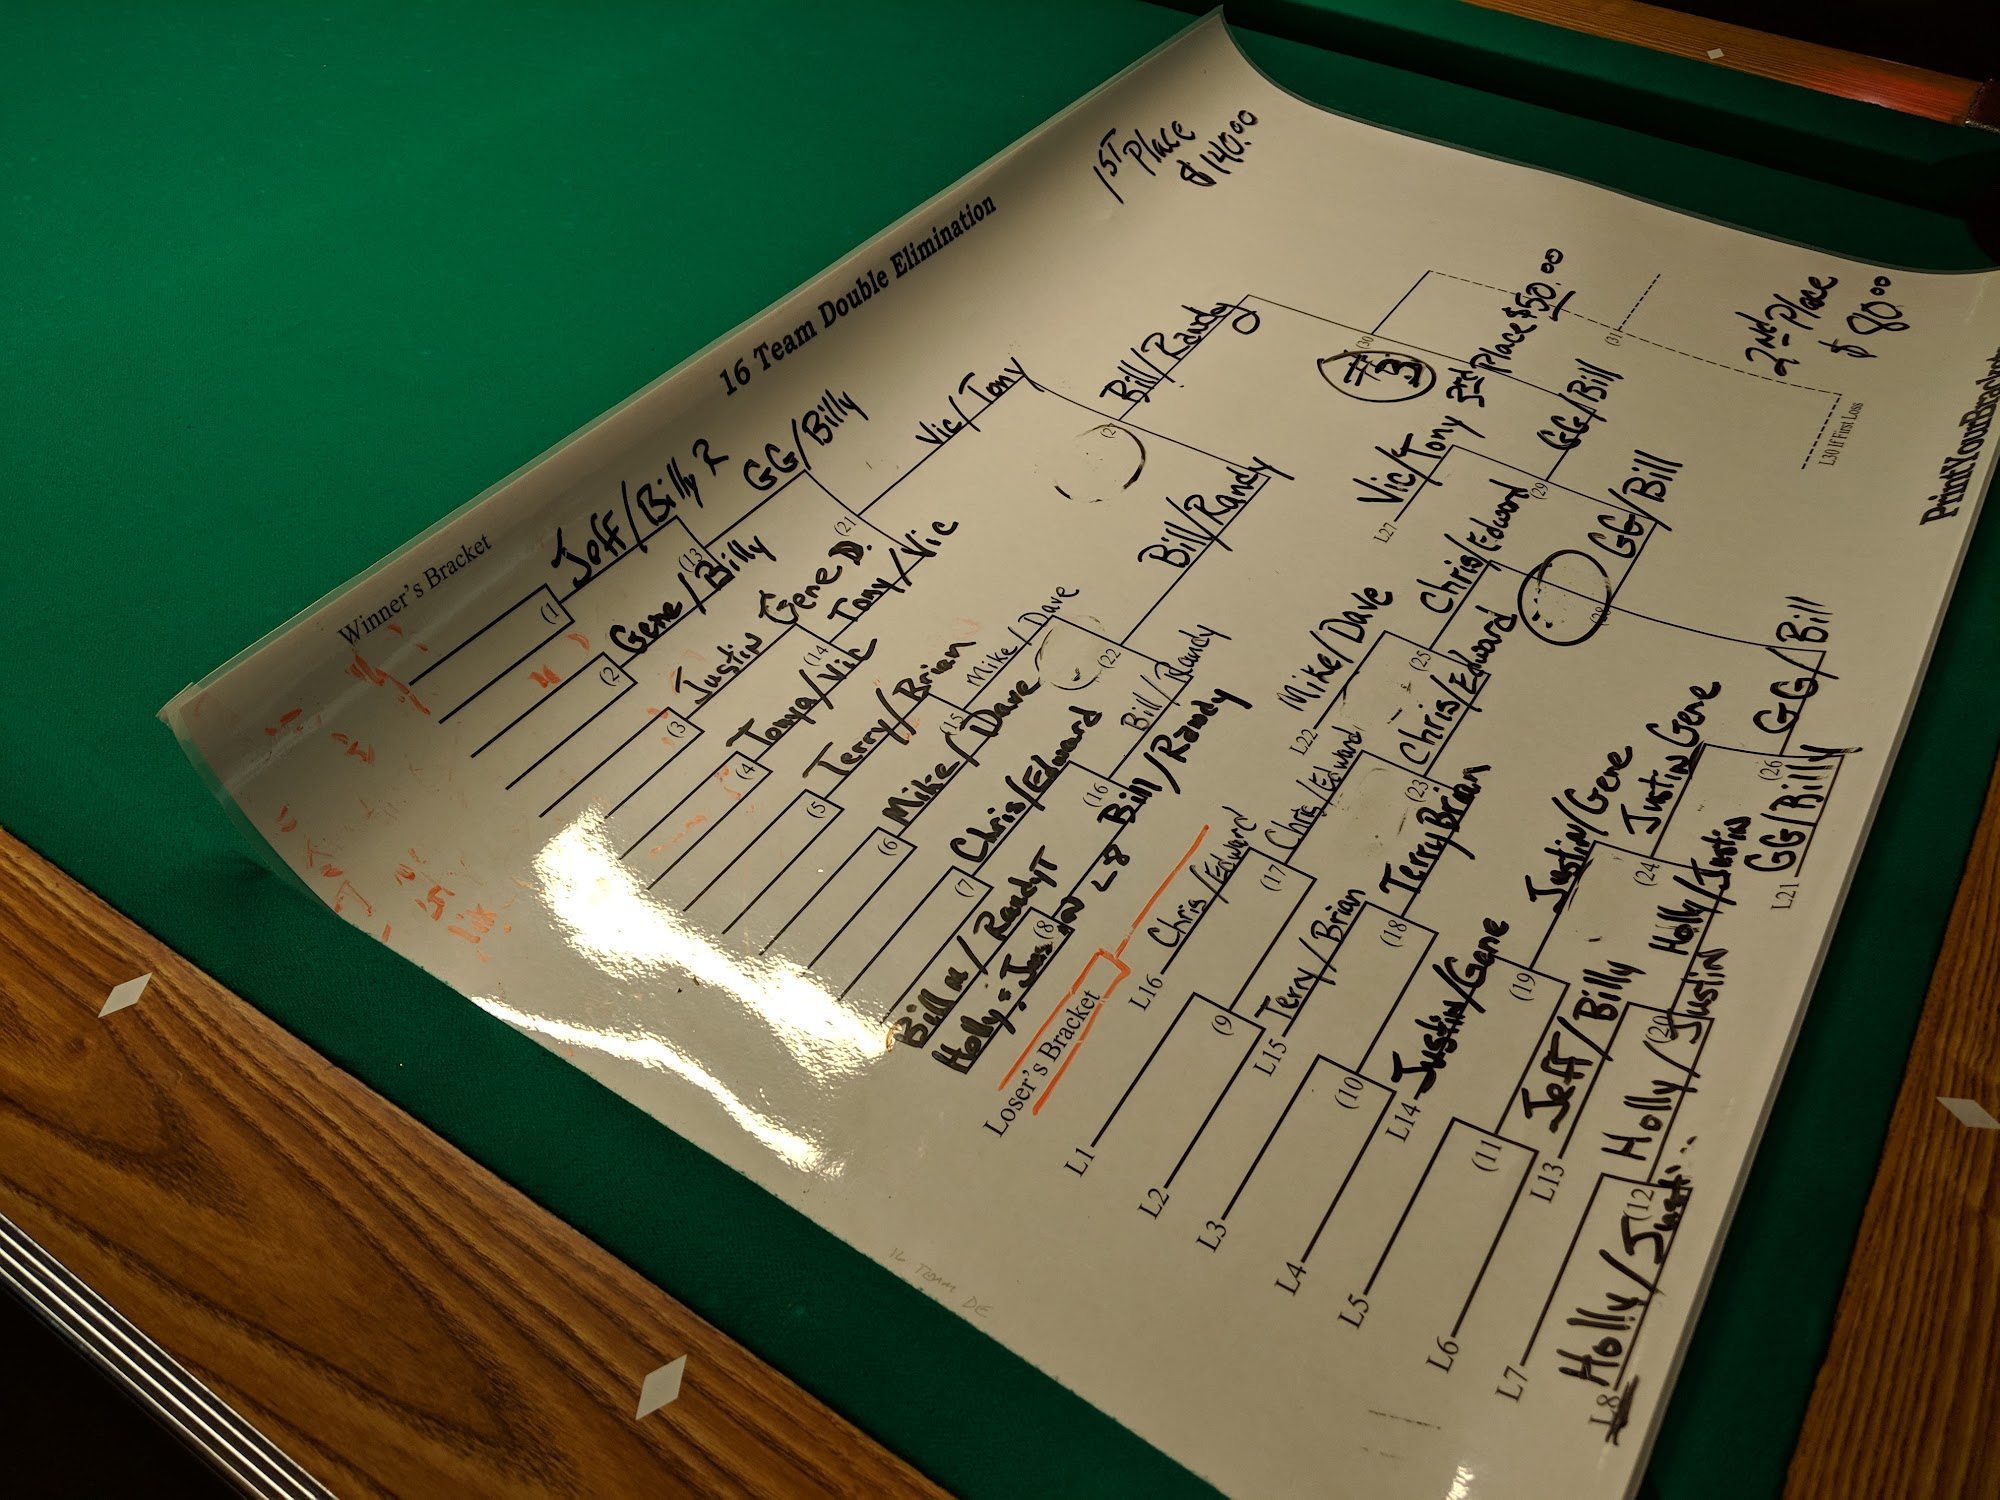 16 Team Double Elimination
Winner's Bracket
1ST Place
$140.00
(1
Jeff/Billy R
(13
GG/Billy
(2
Gene/Billy
(21
Vic/Tony
(3
Justin Gene D.
(14
Tony/Vic
(4
Tonya/Vic
(27
Bill/Randy
(5
Terry/Brian
(15
Mike/Dave
(6
Mike/Dave
(22
Bill/Randy
(7
Chris/Edward
(16
Bill/Randy
Bill M/Randy T
(8
Bill/Randy
L8
(30
#3
(31
2nd Place
$80.00
L30 If First Loss
Loser's Bracket
L16 Chris/Edward
L1
(9
L2
(17
Chris/Edward
L15 Terry/Brian
L3
(10
L4
(18
Terry Brian
(23
Chris/Edward
L22 Mike/Dave
(25
Chris/Edward
L27 Vic/Tony 3rd Place $50.00
(29
GG/Bill
L14 Justin/Gene
L5
(11
L6
(19
Justin/Gene
L13 Jeff/Billy
L7
(12
L8 Holly/
Holly/Justin
(20
Holly/Justin
(24
Justin Gene
L21 GG/Billy
(26
GG/Bill
(28
GG/Bill
16 TEAM DE